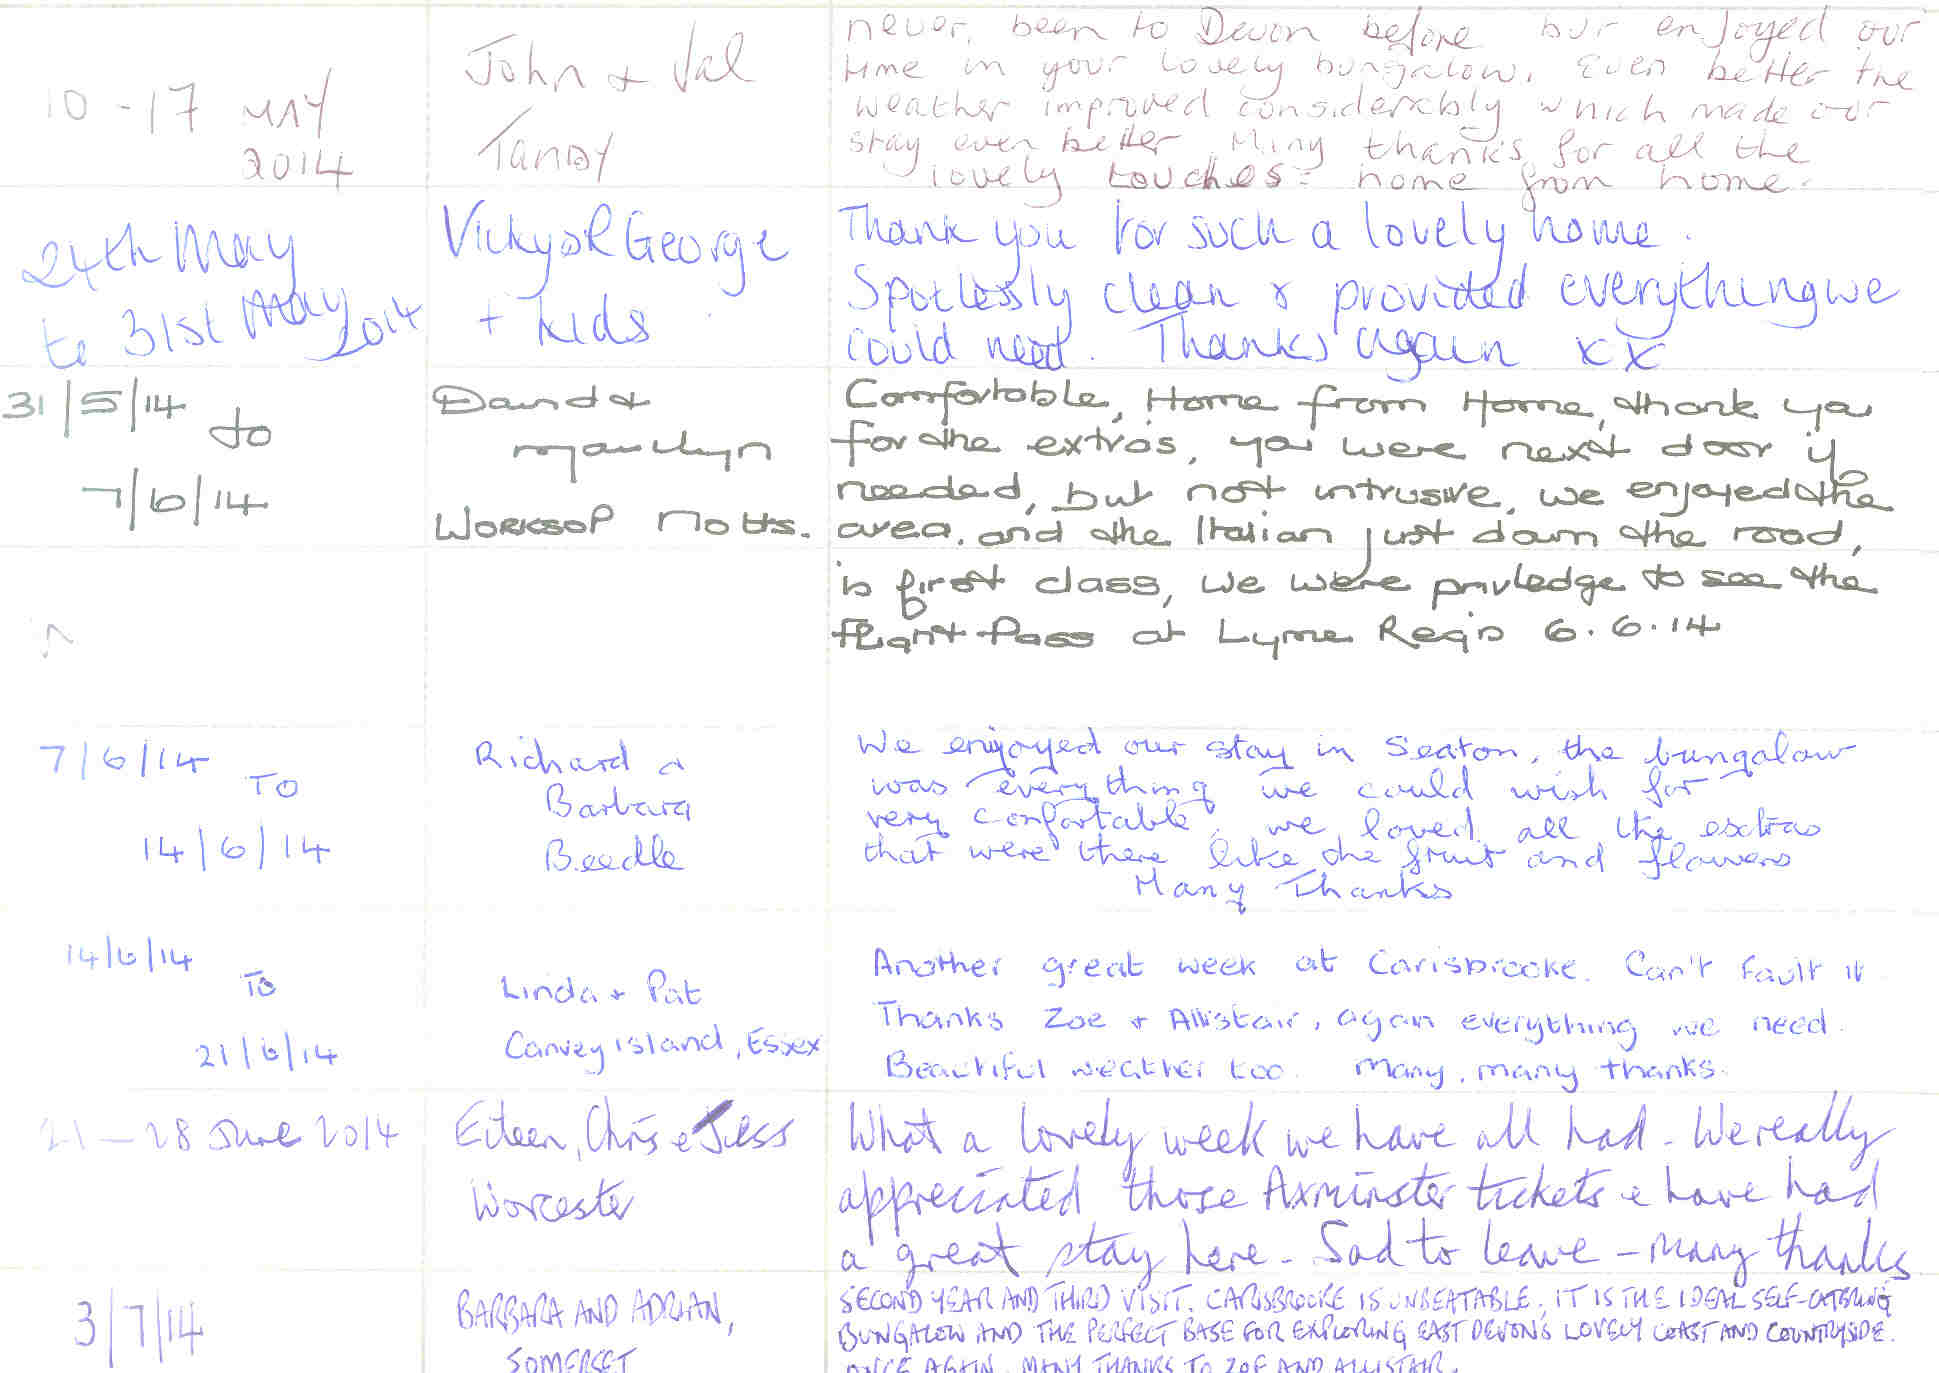 10-17 MAY
2014
John + Val
Tandy
never, been to Devon before but enjoyed our
time in your lovely bungalow. Even better the
weather improved considerably which made our
stay even better. Many thanks for all the
lovely touches: home from home.
24th May
to 31st May 2014
Vicky & George
+ kids
Thank you for such a lovely home.
Spotlessly clean & provided everything we
could need. Thanks again xx
31/5/14 to
7/6/14
David &
Marilyn
Worksop Notts.
Comfortable, Home from Home, thank you
for the extras, you were next door if
needed, but not intrusive, we enjoyed the
area, and the Italian just down the road,
is first class, we were privledge to see the
flight Pass at Lyme Regis 6.6.14
7/6/14 TO
14/6/14
Richard &
Barbara
Beedle
We enjoyed our stay in Seaton, the bungalow
was everything we could wish for
very confortable, we loved all the extras
that were there like the fruit and flowers
Many Thanks
14/6/14
TO
21/6/14
Linda + Pat
Canvey Island, Essex
Another great week at Carisbrooke. Can't fault it
Thanks Zoe + Allistair, again everything we need.
Beautiful weather too. Many, many thanks.
21-28 June 2014
Eileen, Chris & Jess
Worcester
What a lovely week we have all had - We really
appreciated those Axminster tickets & have had
a great stay here - Sad to leave - Many thanks
3/7/14
BARBARA AND ADRIAN,
SOMERSET
SECOND YEAR AND THIRD VISIT. CARISBROOKE IS UNBEATABLE. IT IS THE IDEAL SELF-CATERING
BUNGALOW AND THE PERFECT BASE FOR EXPLORING EAST DEVON'S LOVELY COAST AND COUNTRYSIDE.
ONCE AGAIN, MANY THANKS TO ZOE AND ALLISTAIR.